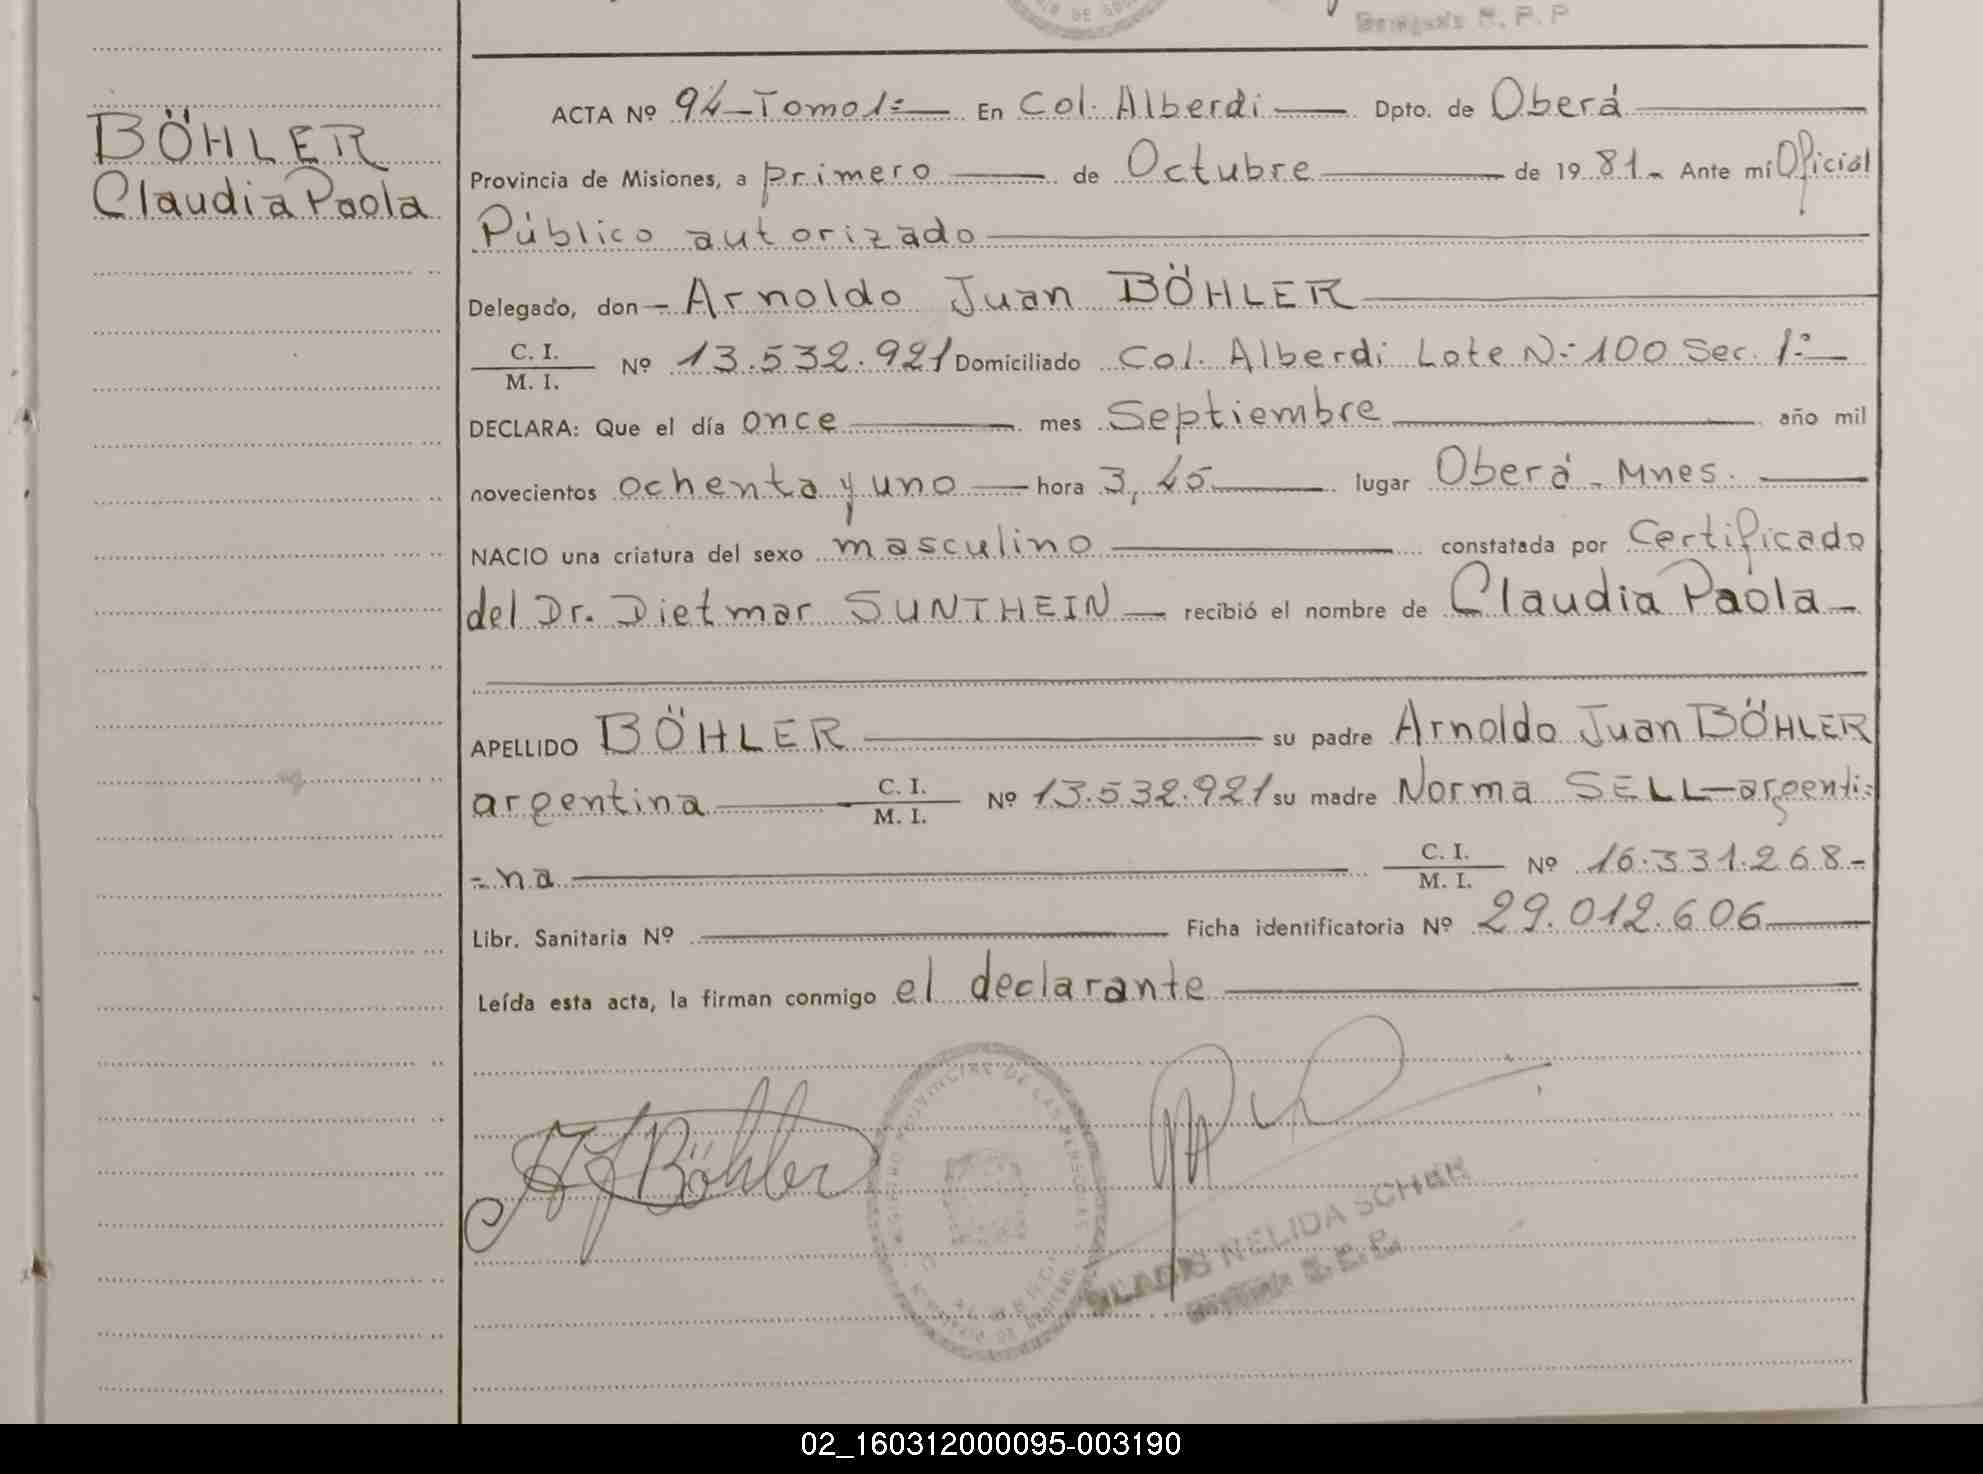 BÖHLER
Claudia Paola
ACTA Nº 94-Tomo 1º En Col. Alberdi Dpto. de Oberá
Provincia de Misiones, a primero de Octubre de 1981.- Ante mí Oficial
Público autorizado
Delegado, don - Arnoldo Juan BÖHLER
C. I.
M. I. Nº 13.532.921 Domiciliado Col. Alberdi Lote Nº 100 Sec. 1ª
DECLARA: Que el día once mes Septiembre año mil
novecientos ochenta y uno hora 3,45 lugar Oberá - Mnes.
NACIO una criatura del sexo masculino constatada por Certificado
del Dr. Dietmar SUNTHEIN recibió el nombre de Claudia Paola -
APELLIDO BÖHLER su padre Arnoldo Juan BÖHLER
argentina C. I. M. I. Nº 13.532.921 su madre Norma SELL-argenti=
=na C. I. M. I. Nº 16.331.268-
Libr. Sanitaria Nº Ficha identificatoria Nº 29.012.606
Leída esta acta, la firman conmigo el declarante
AJBöhler
NELIDA
02_160312000095-003190